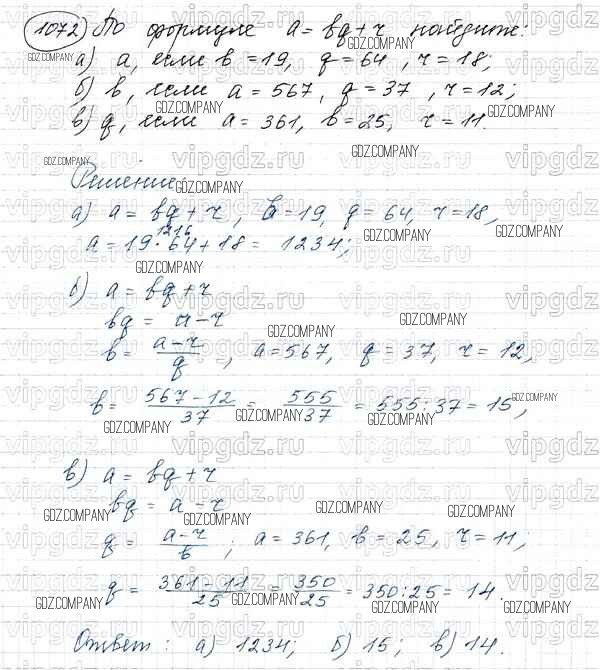 1072 По формуле a = bq + r найдите:
а) a, если b = 19, q = 64, r = 18;
б) b, если a = 567, q = 37, r = 12;
в) q, если a = 361, b = 25, r = 11.
Решение
а) a = bq + r, b = 19, q = 64, r = 18,
1216
a = 19 · 64 + 18 = 1234;
б) a = bq + r
bq = a - r
b = (a - r)/q, a = 567, q = 37, r = 12,
b = (567 - 12)/37 = 555/37 = 555 : 37 = 15,
в) a = bq + r
bq = a - r
q = (a - r)/b; a = 361, b = 25, r = 11;
q = (361 - 11)/25 = 350/25 = 350 : 25 = 14.
Ответ: а) 1234; б) 15; в) 14.
vipgdz.ru
GDZ.COMPANY